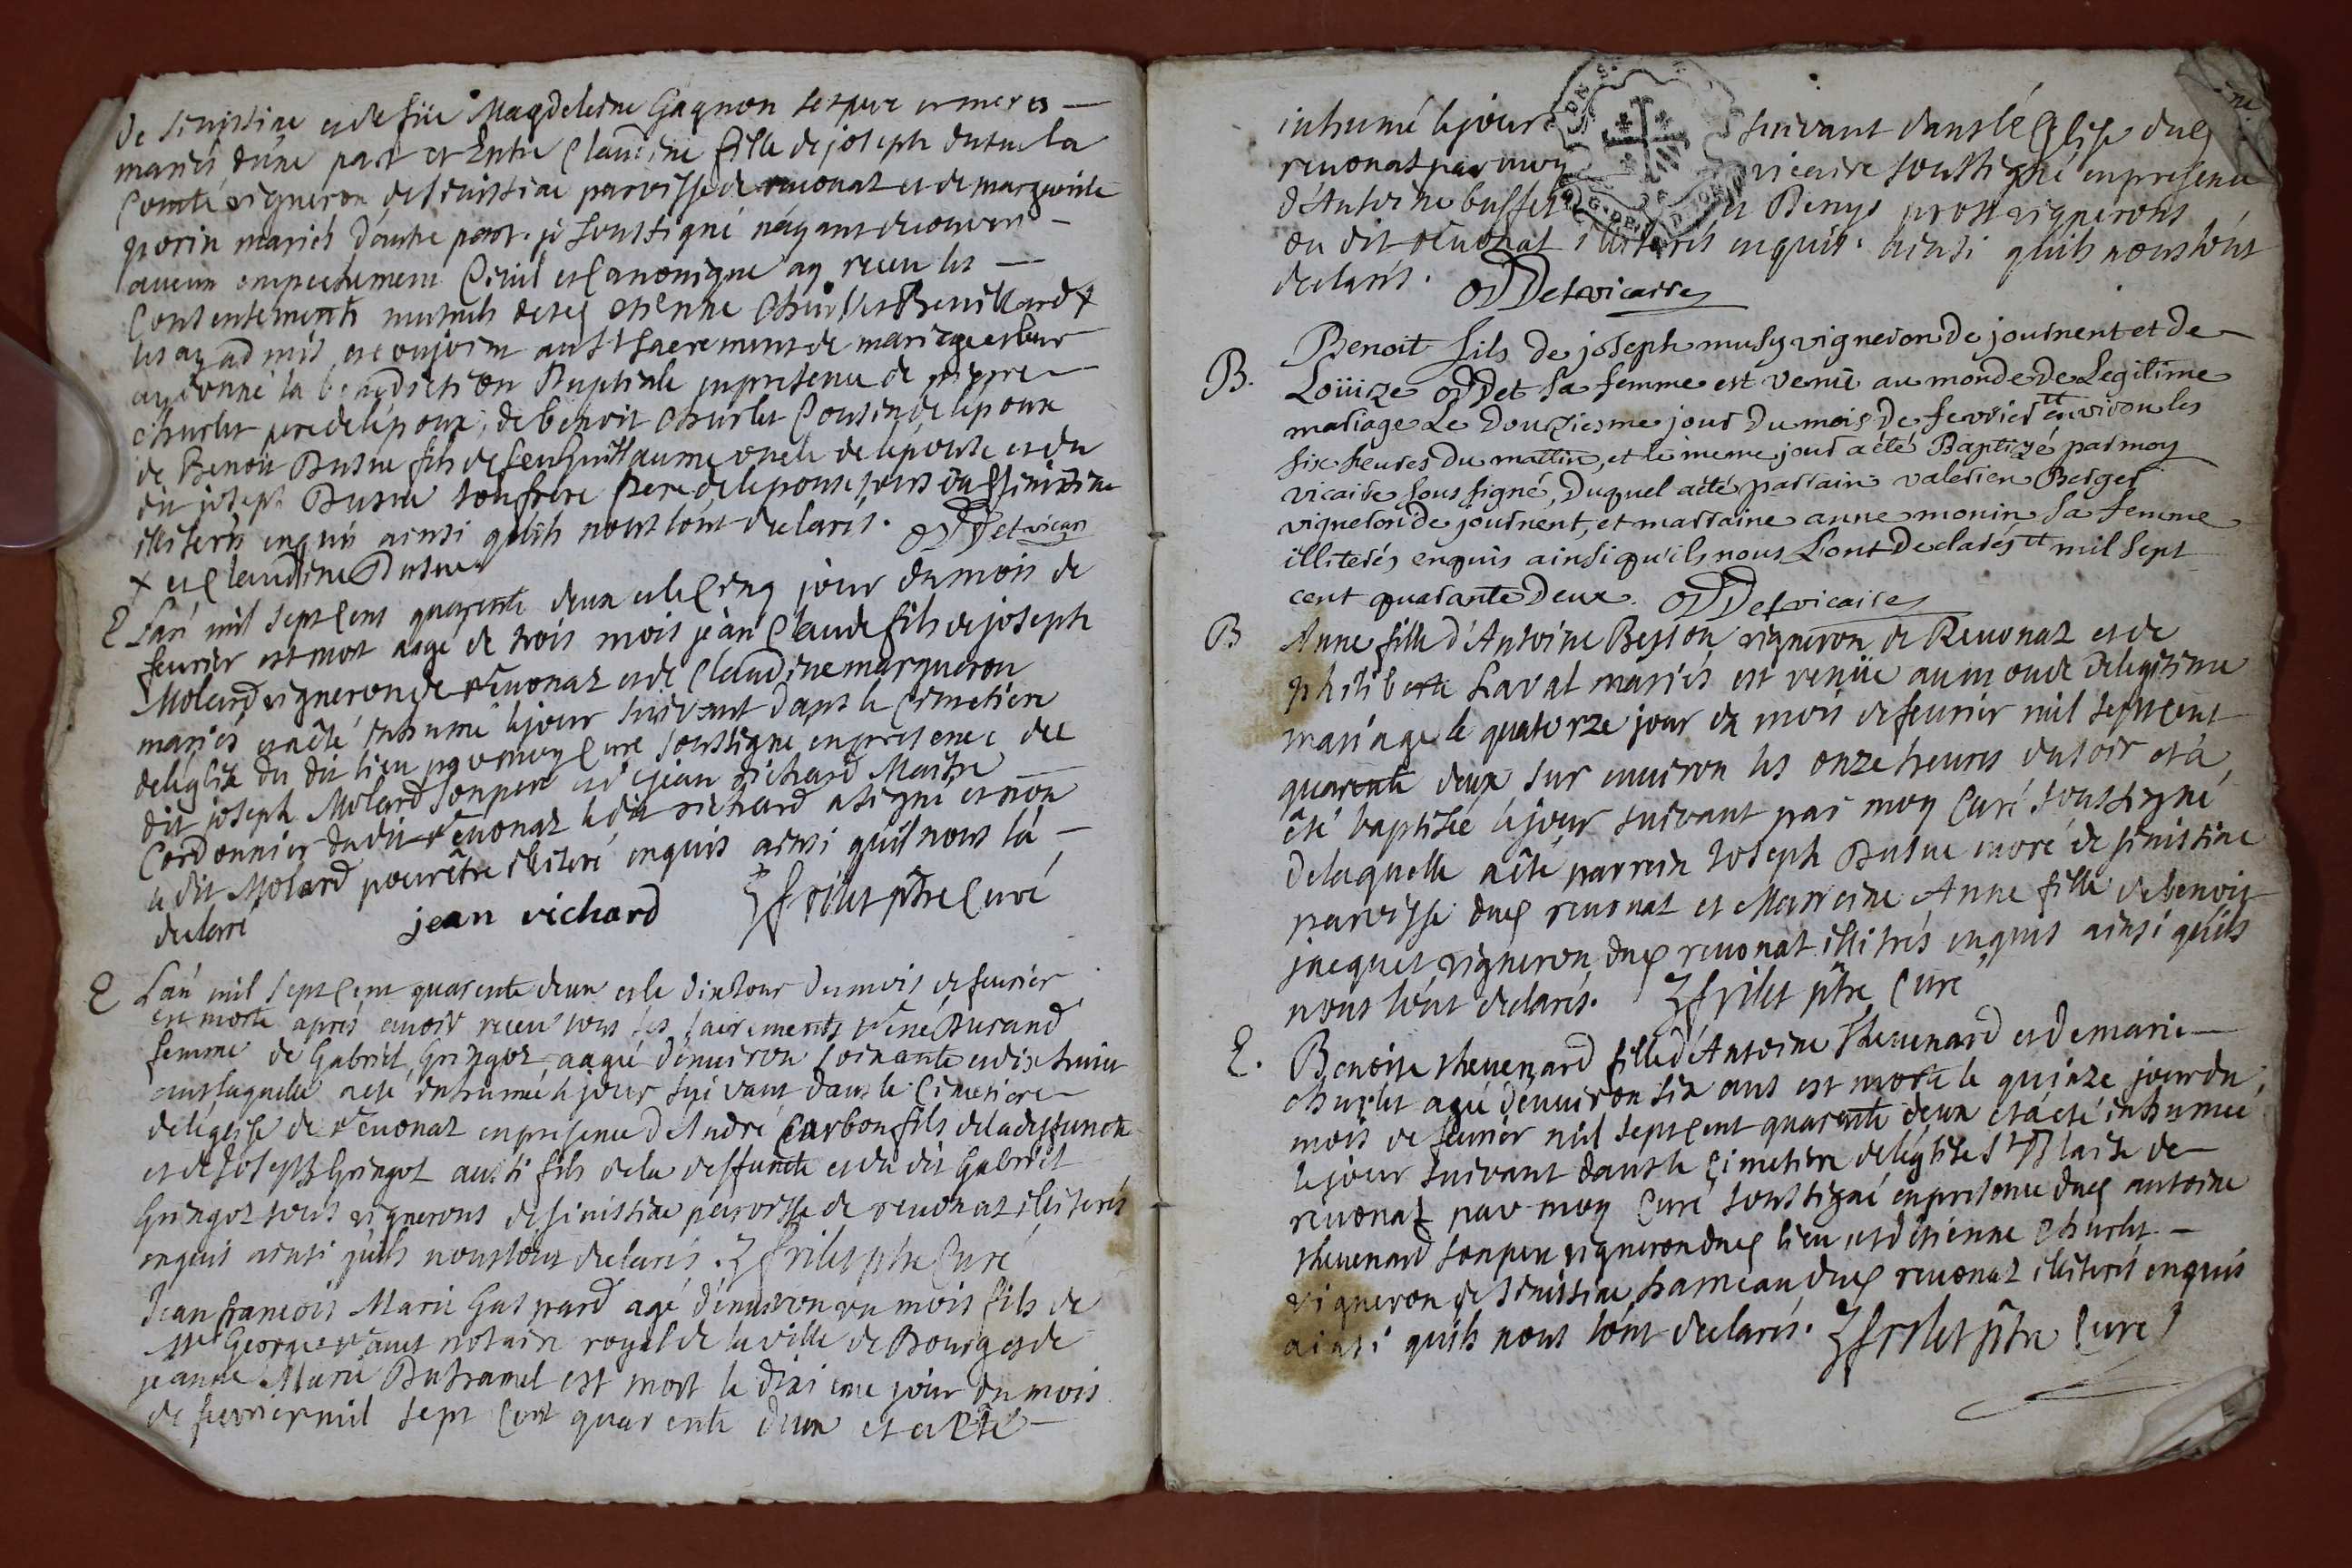 de sinissine et de füe Magdeleine Gagnon ses pere et meres
mariés, d'une part et Entre Claudine fille de joseph dusue la
Comte vigneron de sinissine parroisse de revonat et de marguerite
morin mariés d'autre part. je soussigné n'ayant decouvert
aucun empechement Civil et Canonique ay receu les
Consentements mutuels desq Etienne Churlet Brevillard x
les ay admis et conjoint au St sacrement de mariage et leur
ay donné la benediction Nuptiale en presence de pierre
churlet pere de lépoux, de benoit churlet Cousin de lepoux
de Benoit Dusue fils de feu Guillaume oncle de lepouse et du
dit joseph Dusue son frere Pere de lepouse tous de sinissine
illiterés enquis ainsi quils nous lónt declarés. ODDet vicair
x et Claudine Dusue
E Lan mil sept Cent quarente deux et le Cinq jour du mois de
fevrier est mort aagé de trois mois jean Claude fils de joseph
Molard vigneron de revonat et de Claudine marqueron
mariés et a été inhumé le jour suivant dans le Cimetiere
de leglise du dit lieu par moy Curé soussigné en presence du
dit joseph Molard son pere et de jean richard Maitre
Cordonnier du dit revonat le dit richard a signé et non
le dit Molard pour être illiteré enquis ainsi quil nous la
declaré jean richard frilet ptre Curé
E Lan mil sept Cent quarente deux et le dix jour du mois de fevrier
est morte aprés avoir receu tous les sacrements réné Durand
femme de Gabriel Gringoz aagée d'environ soixante et dix huit
ans laquelle a eté inhumée le jour suivant dans le Cimetiere
de leglise de revonat en presence d'André Carbon fils de la deffuncte
et de Joseph Gringoz aussi fils de la deffuncte et du dit Gabriel
Gringoz tous vignerons de sinissine parroisse de revonat illiterés
enquis ainsi quils nous lont declarés. frilet ptre Curé
Jean francois Marie Gaspard agé d'environ un mois fils de
Mr George notaire royal de la ville de Bourg et de
jeanne Marie Duhamel est mort le dixieme jour du mois
de fevrier mil sept Cent quarente deux et a été
inhumé le jour suivant dans léglise dud
revonat par moy vicaire soussigné en presence
d'Antoine buffet et Benys prost vignerons
du dit revonat illiterés enquis. ainsi quils nous lónt
declarés. ODDet vicaire
B. Benoit fils de joseph musy vigneron de journent et de
Loüize oddet sa femme est venû au monde de Legitime
mariage Le Douziesme jour du mois de fevrier tt environ les
six heures du mattin, et le meme jour a été Baptizé par moy
vicaire sous signé, duquel a été parrain valerien Berger
vigneron de journent, et marraine anne monin sa femme
illiterés enquis ainsi qu'ils nous L'ont Declarés tt mil sept
cent quarante deux. ODDet vicaire
B Anne fille d'Antoine Besson vigneron de Revonat et de
philiberte Laval mariés est venüe au monde de legitime
mariage le quatorze jour du mois de fevrier mil sept cent
quarente deux sur environ les onze heures du soir et a
été baptisée le jour suivant par moy Curé soussigné
de laquelle a été parrein Joseph Dusue moré de sinissine
parroisse dud revonat et Marreine Anne fille de benoit
jacquet vigneron dud revonat illitrés enquis ainsi quils
nous lónt declarés. frilet ptre Curé
E. Benoite thevenard fille d'Antoine thevenard et de marie
churlet agée d'environ six ans est morte le quinze jour du
mois de fevrier mil sept cent quarente deux et a eté inhumée
le jour suivant dans le Cimetiere de léglise St Blaise de
revonat par moy Curé soussigné en presence dud antoine
thevenard son pere vigneron dud lieu, et d'étienne Churlet
vigneron de sinissine hameau dud revonat illiterés enquis
ainsi quils nous lónt declarés. frilet ptre Curé